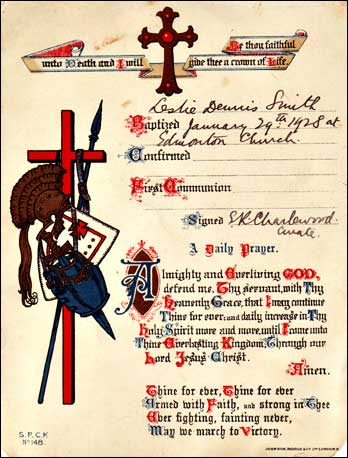 Be thou faithful
unto Death and I will give thee a crown of Life.
Leslie Dennis Smith
Baptized January 29th 1928 at
Edmonton Church.
Confirmed
First Communion
Signed S.R. Charlewood.
Curate.
A Daily Prayer.
Almighty and Everliving GOD,
defend me, Thy servant, with Thy
Heavenly Grace, that I may continue
Thine for ever: and daily increase in Thy
Holy Spirit more and more, until I come unto
Thine Everlasting Kingdom, Through our
Lord Jesus Christ.
Amen.
Thine for ever, Thine for ever
Armed with Faith, and strong in Thee
Ever fighting, fainting never,
May we march to Victory.
S.P.C.K.
No 148.